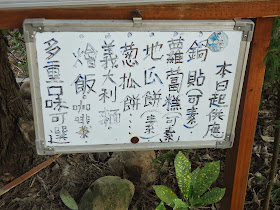 本日起供應
鍋貼(可素)
蘿蔔糕(可素)
地瓜餅(素)
葱抓餅...
義大利麵
燴飯(咖哩素
多重口味可選